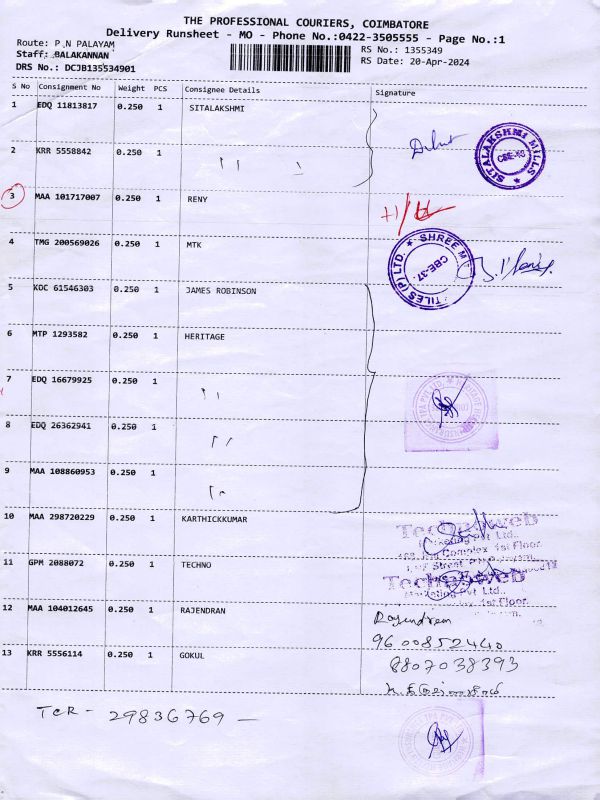 THE PROFESSIONAL COURIERS, COIMBATORE
Delivery Runsheet - MO - Phone No.:0422-3505555 - Page No.:1
Route: P N PALAYAM
Staff: BALAKANNAN
DRS No.: DCJB135534901
RS No.: 1355349
RS Date: 20-Apr-2024
S No Consignment No Weight PCS Consignee Details Signature
1 EDQ 11813817 0.250 1 SITALAKSHMI
SITALAKSHMI MILLS
2 KRR 5558842 0.250 1 " "
3 MAA 101717007 0.250 1 RENY
4 TMG 200569026 0.250 1 MTK
SHREE M TILES (P) LTD. CBE-37.
5 KOC 61546303 0.250 1 JAMES ROBINSON
6 MTP 1293582 0.250 1 HERITAGE
7 EDQ 16679925 0.250 1 "
8 EDQ 26362941 0.250 1 "
9 MAA 108860953 0.250 1 "
10 MAA 298720229 0.250 1 KARTHICKKUMAR
11 GPM 2088072 0.250 1 TECHNO
Marketing Pvt Ltd.,
12 MAA 104012645 0.250 1 RAJENDRAN
Rajendran
9600852440
13 KRR 5556114 0.250 1 GOKUL
8807038393
TCR - 29836769 -